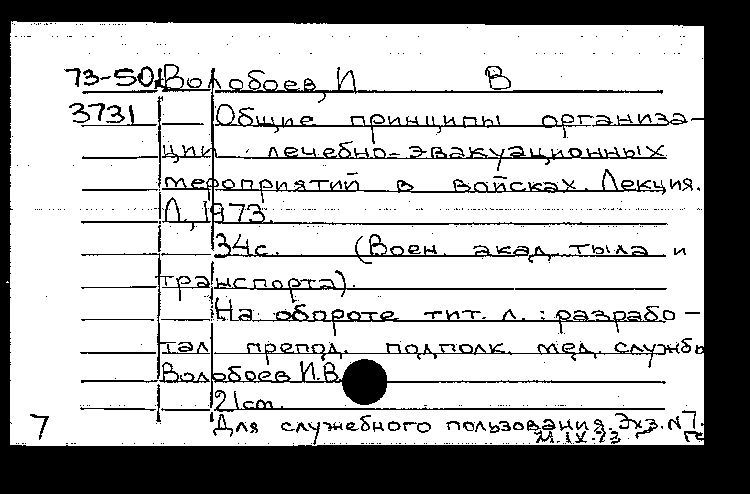 73-50 Волобоев, И В
3731 Общие принципы организа-
ции лечебно-эвакуационных
мероприятий в войсках. Лекция.
Л., 1973.
34с. (Воен. акад. тыла и
транспорта).
На обороте тит. л.: разрабо-
тал препод. подполк. мед. службы
Волобоев И.В.
21 cm.
Для служебного пользования. Экз. №7.
7 21.IX.73